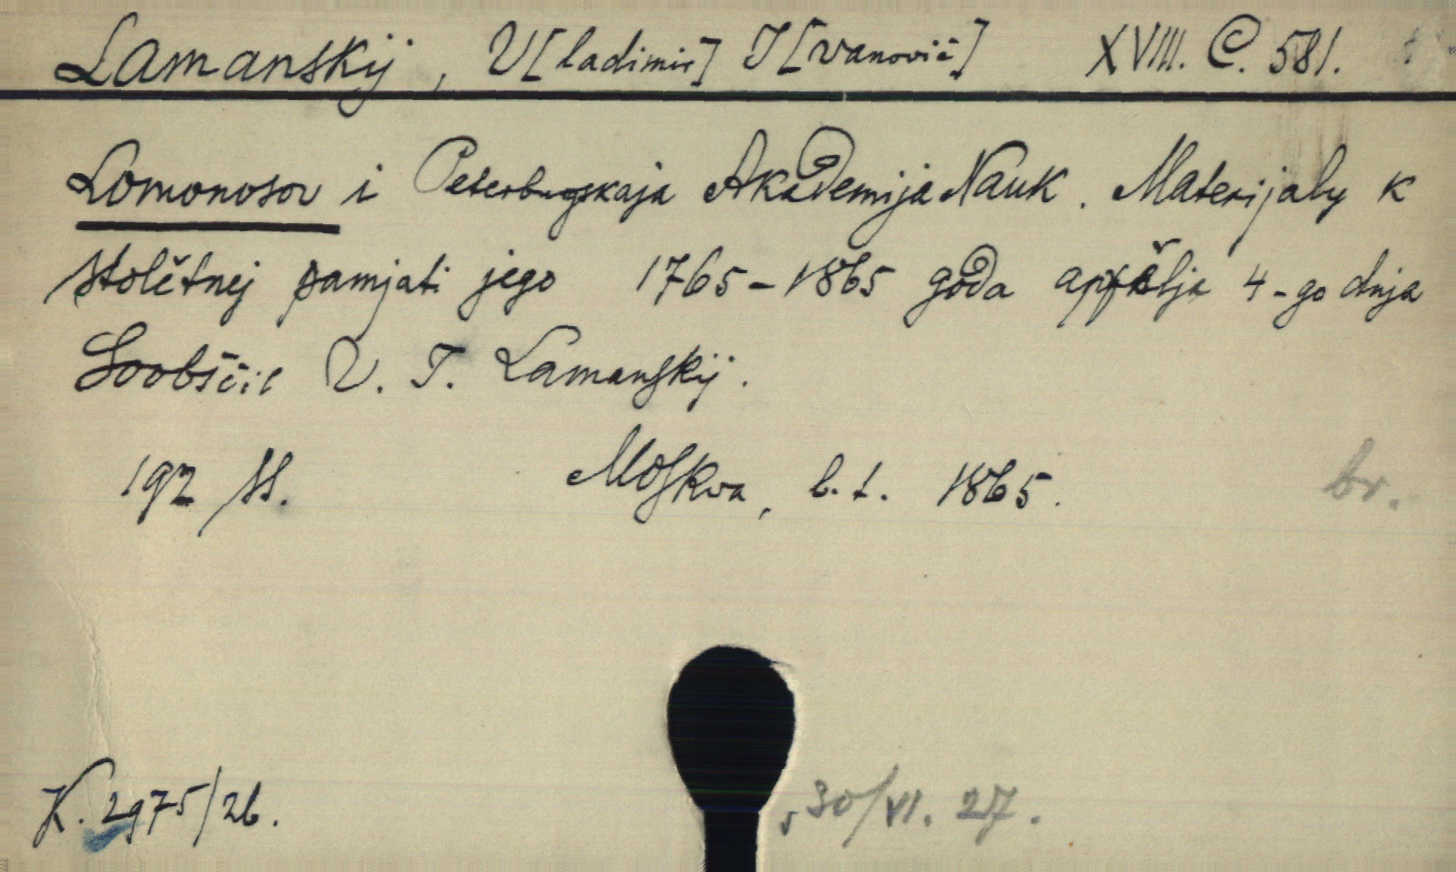 Lamanskij, V[ladimir] I[vanovič] XVIII. C. 581.
Lomonosov i Peterburgskaja Akademija Nauk. Materijaly k
stolětnej pamjati jego 1765-1865 goda aprělja 4-go dnja
Soobščil V. I. Lamanskij.
192 SS. Moskva, b. t. 1865. br.
K. 2975/26. 30/VI. 27.